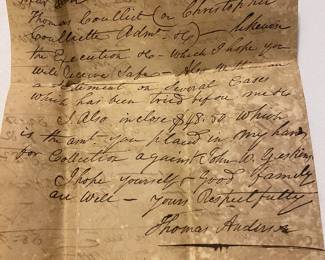 Thomas Coullict (or Christopher
Coulliette Adms. &c) – likewise
the Execution &c – which I hope you
will Receive Safe – Also
a Statement on Several Cases
which has been tried before me
I also inclose $48.50 which
is the amt. you placed in my hands
For Collection against John W. Gaskins
I hope yourself & Good family
are Well – Yours Respectfully
Thomas Anderson